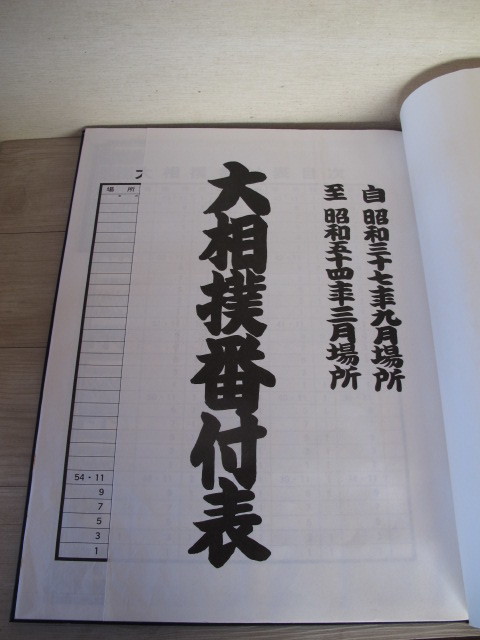 自 昭和三十七年九月場所
至 昭和五十四年三月場所
大相撲番付表
場所
54・11
9
7
5
3
1